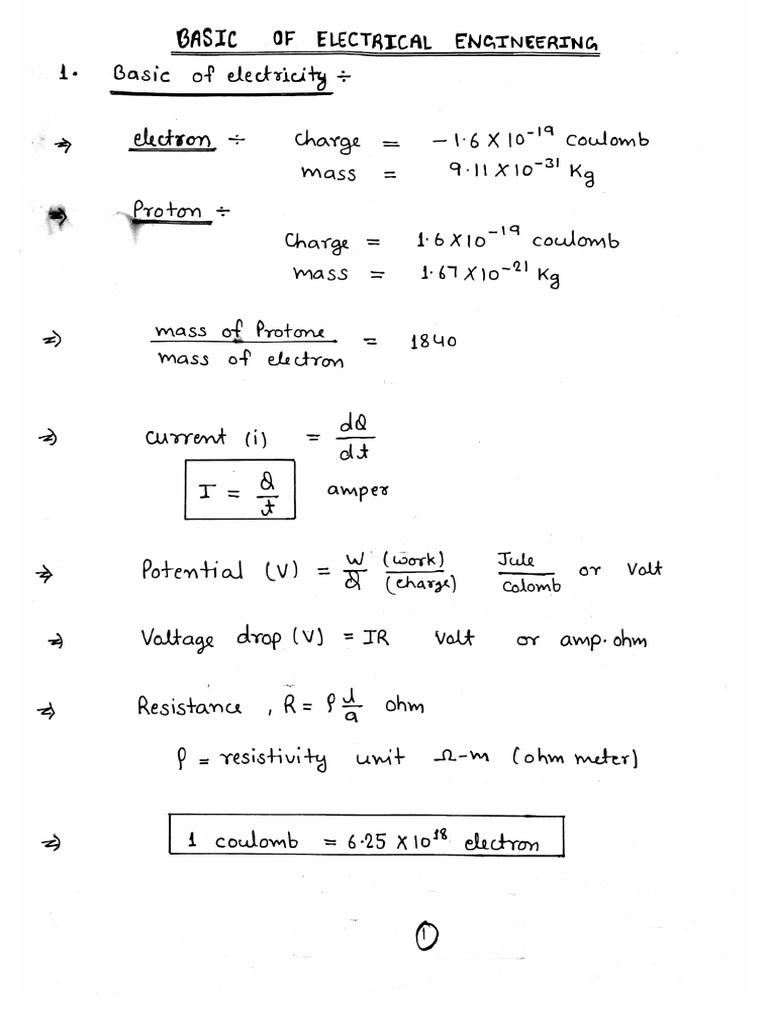 BASIC OF ELECTRICAL ENGINEERING
1. Basic of electricity ÷
⇒ electron ÷ charge = -1.6 X 10⁻¹⁹ coulomb
mass = 9.11 X 10⁻³¹ Kg
⇒ Proton ÷
charge = 1.6 X 10⁻¹⁹ coulomb
mass = 1.67 X 10⁻²¹ Kg
⇒ mass of Protone / mass of electron = 1840
⇒ current (i) = dQ/dt
I = Q/t amper
⇒ Potential (V) = W/Q (work)/(charge) Jule/Colomb or Volt
⇒ Voltage drop (V) = IR Volt or amp. ohm
⇒ Resistance, R = ρ l/a ohm
ρ = resistivity unit Ω-m (ohm meter)
⇒ 1 coulomb = 6.25 X 10¹⁸ electron
1